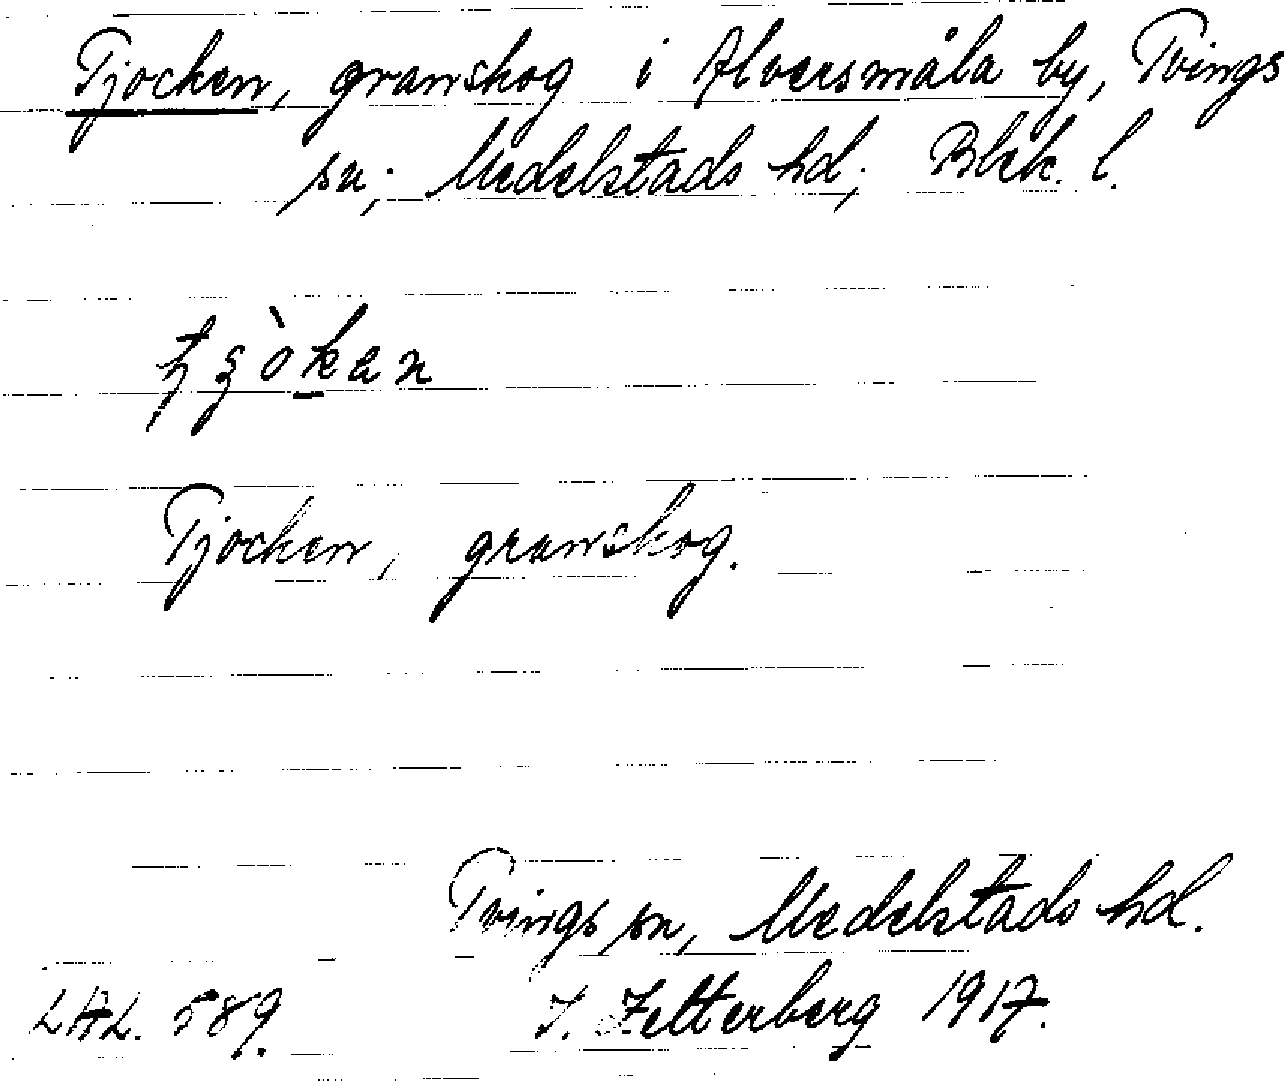 Tjocken, granskog i Alversmåla by, Tvings
sn; Medelstads hd; Blek. l.
Tjocken, granskog.
Tvings sn, Medelstads hd.
LAL. 589. J. Zetterberg 1917.